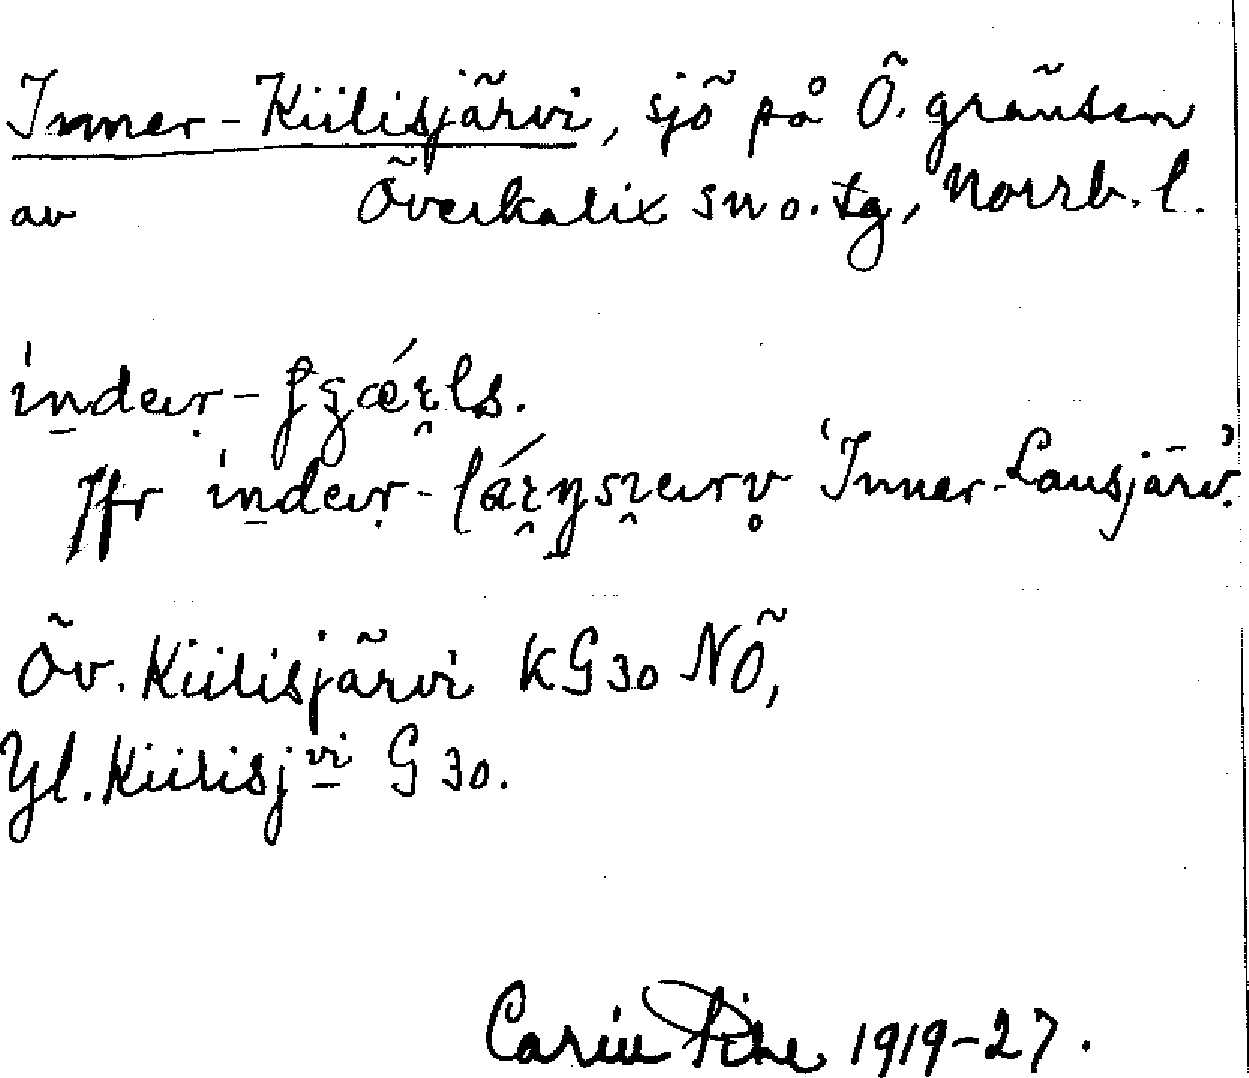 Inner-Kiilisjärvi, sjö på Ö. gränsen
av Överkalix sn o. tg, Norrb. l.
Jfr 'Inner-Lansjärv'.
Öv. Kiilisjärvi KG 30 NÖ,
Yl. Kiilisjvi G 30.
Carin Pihl 1919-27.